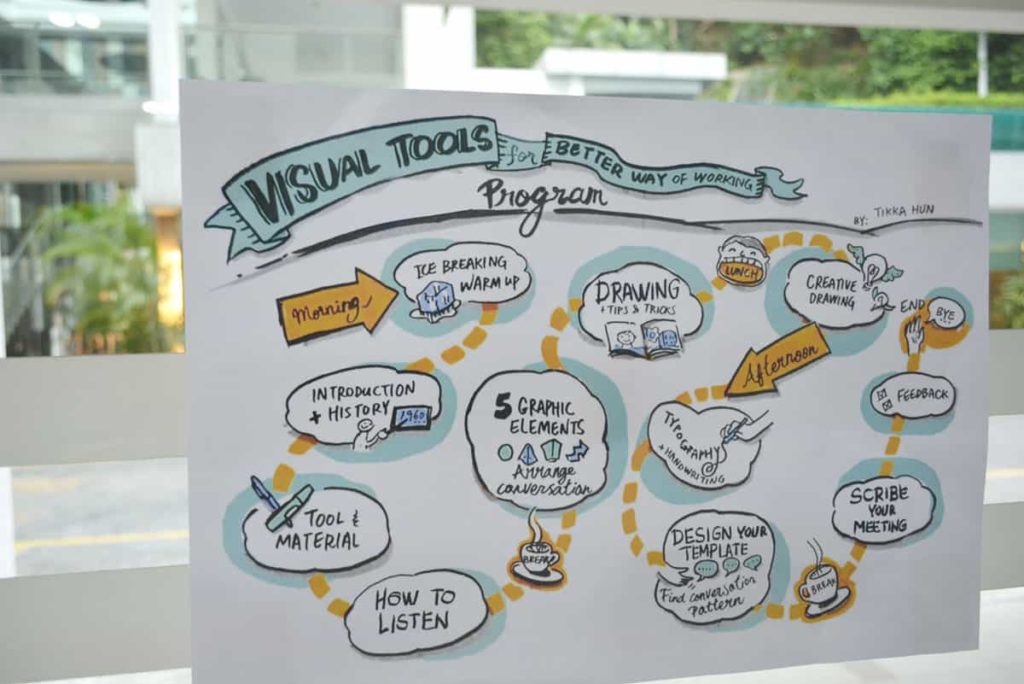 VISUAL TOOLS for BETTER WAY OF WORKING
Program
BY: TIKKA HUN
Morning
ICE BREAKING
WARM UP
INTRODUCTION
+ HISTORY
1960
TOOL &
MATERIAL
HOW TO
LISTEN
BREAK
5 GRAPHIC
ELEMENTS
Arrange
conversation
DRAWING
+ TIPS & TRICKS
LUNCH
CREATIVE
DRAWING
Afternoon
TYPOGRAPHY
+ HANDWRITING
DESIGN YOUR
TEMPLATE
Find conversation
pattern
BREAK
SCRIBE
YOUR
MEETING
FEEDBACK
END
BYE